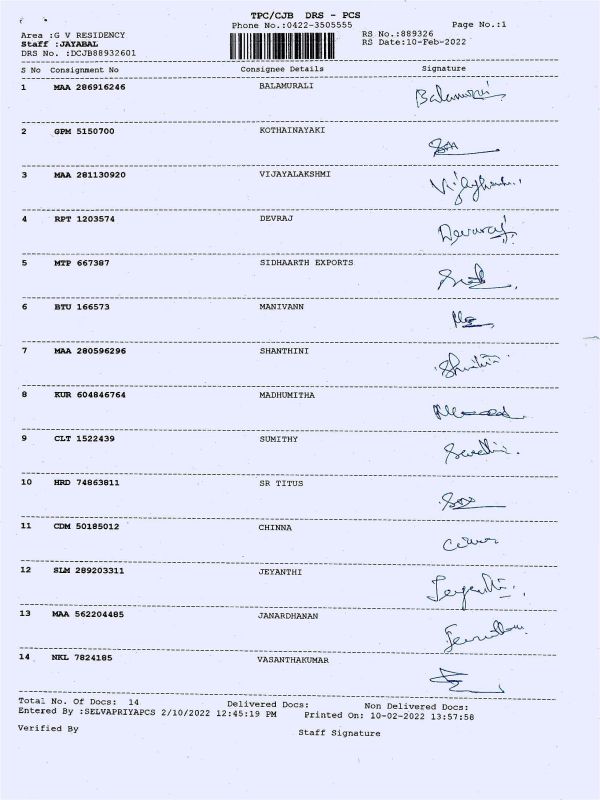 TPC/CJB DRS - PCS
Phone No.:0422-3505555 Page No.:1
Area :G V RESIDENCY RS No.:889326
Staff :JAYABAL RS Date:10-Feb-2022
DRS No. :DCJB88932601
S No Consignment No Consignee Details Signature
1 MAA 286916246 BALAMURALI Balamurali
2 GPM 5150700 KOTHAINAYAKI
3 MAA 281130920 VIJAYALAKSHMI
4 RPT 1203574 DEVRAJ Devaraj
5 MTP 667387 SIDHAARTH EXPORTS
6 BTU 166573 MANIVANN
7 MAA 280596296 SHANTHINI
8 KUR 604846764 MADHUMITHA
9 CLT 1522439 SUMITHY
10 HRD 74863811 SR TITUS
11 CDM 50185012 CHINNA
12 SLM 289203311 JEYANTHI
13 MAA 562204485 JANARDHANAN
14 NKL 7824185 VASANTHAKUMAR
Total No. Of Docs: 14 Delivered Docs: Non Delivered Docs:
Entered By :SELVAPRIYAPCS 2/10/2022 12:45:19 PM Printed On: 10-02-2022 13:57:58
Verified By Staff Signature